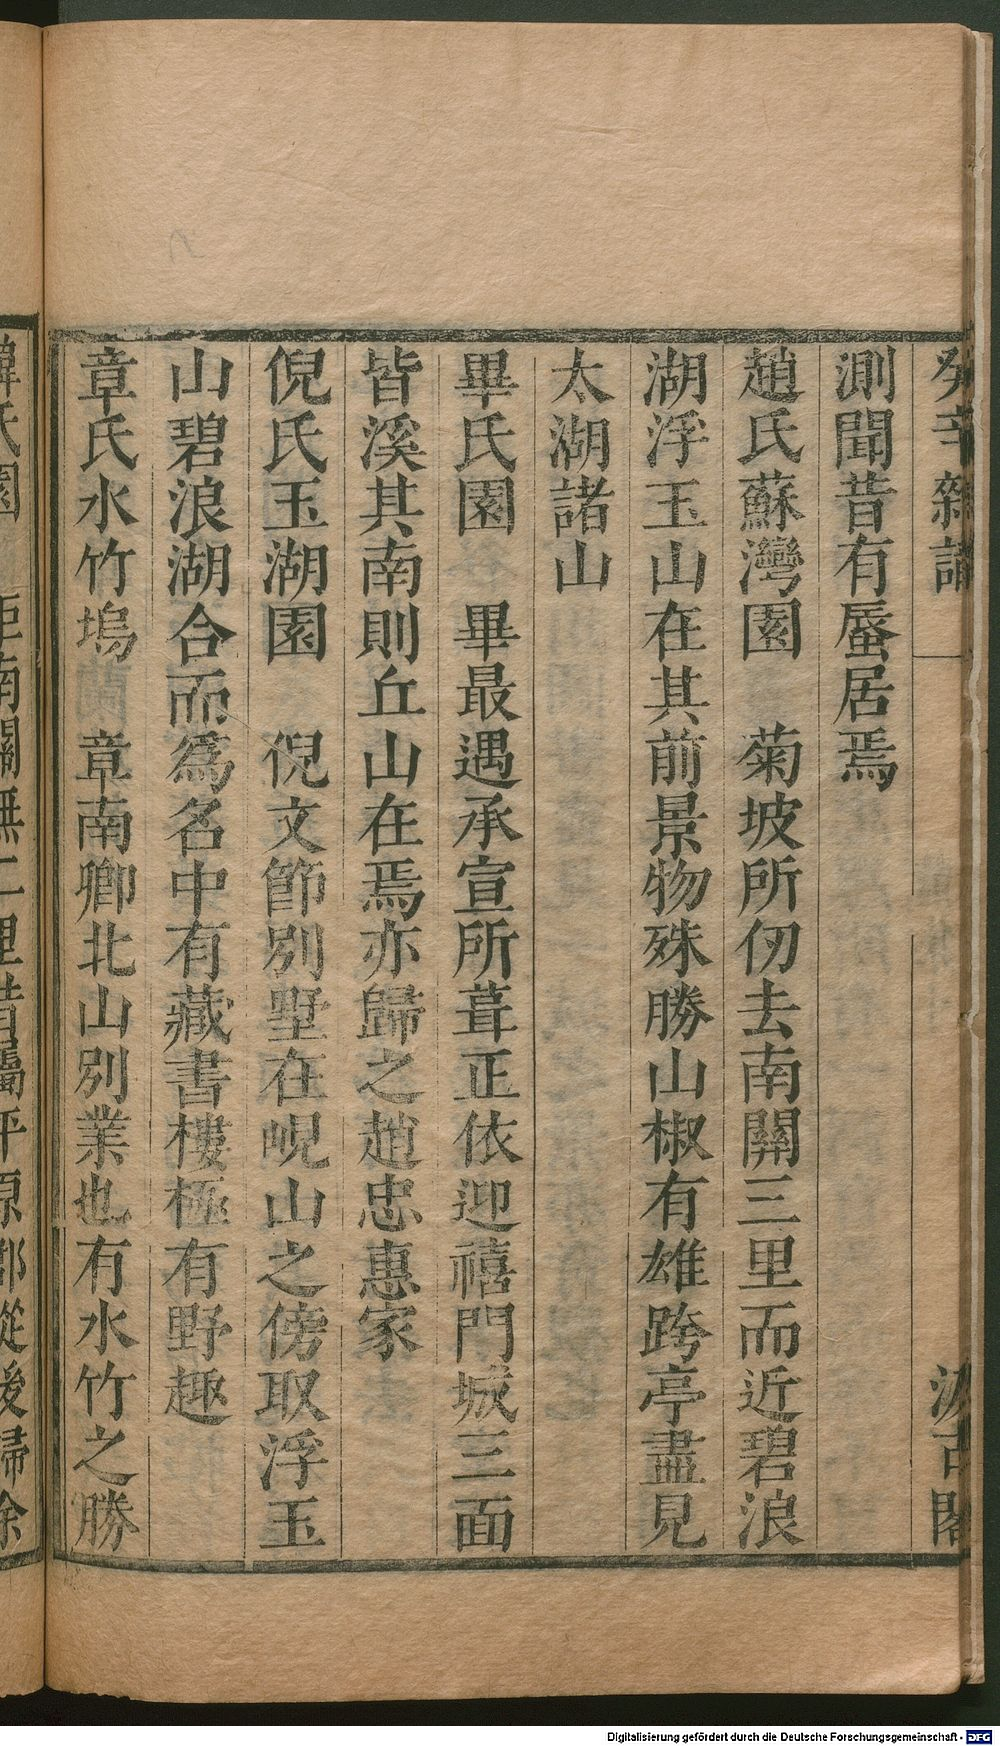 癸辛雜識
汲古閣
測聞昔有蜃居焉
趙氏蘇灣園　菊坡所仞去南關三里而近碧浪
湖浮玉山在其前景物殊勝山椒有雄跨亭盡見
太湖諸山
畢氏園　畢最遇承宣所葺正依迎禧門城三面
皆溪其南則丘山在焉亦歸之趙忠惠家
倪氏玉湖園　倪文節別墅在峴山之傍取浮玉
山碧浪湖合而為名中有藏書樓極有野趣
章氏水竹塢　章南卿北山別業也有水竹之勝
韓氏園　距南關無二里昔屬平原郡從後歸余
Digitalisierung gefördert durch die Deutsche Forschungsgemeinschaft - DFG